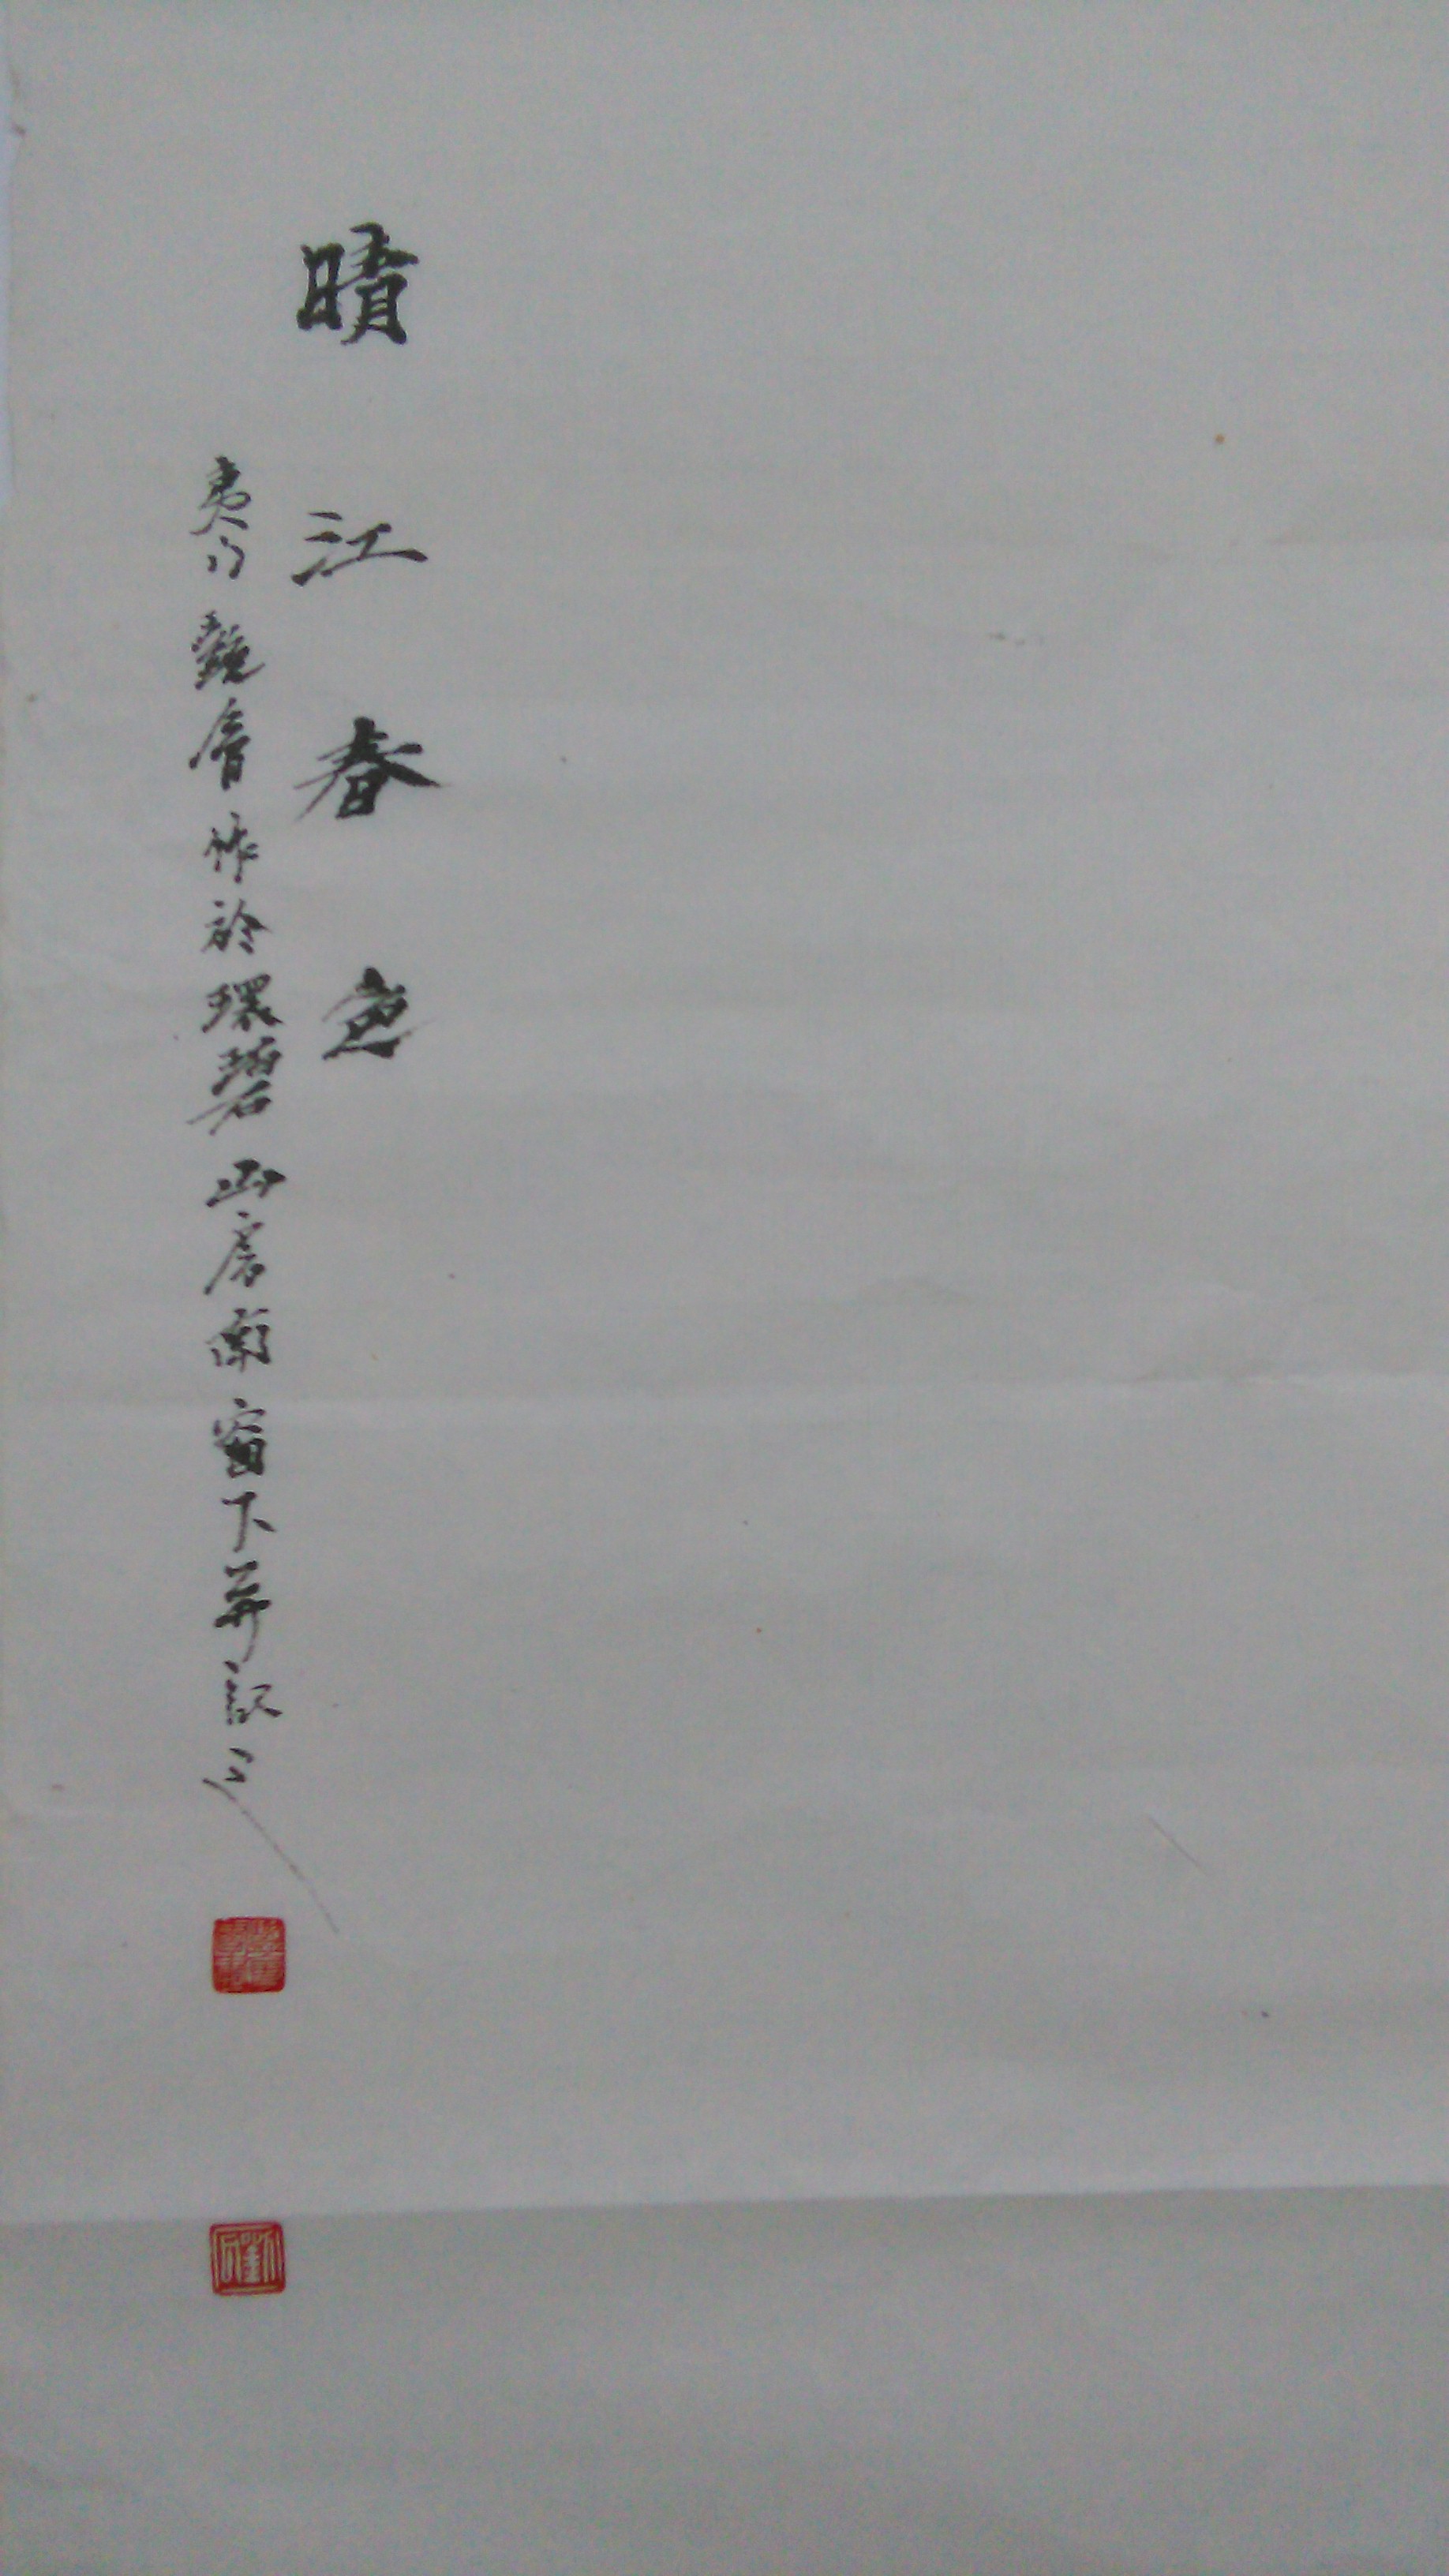 晴江春色
夷门 觀音作於環碧山房南窗下并記之